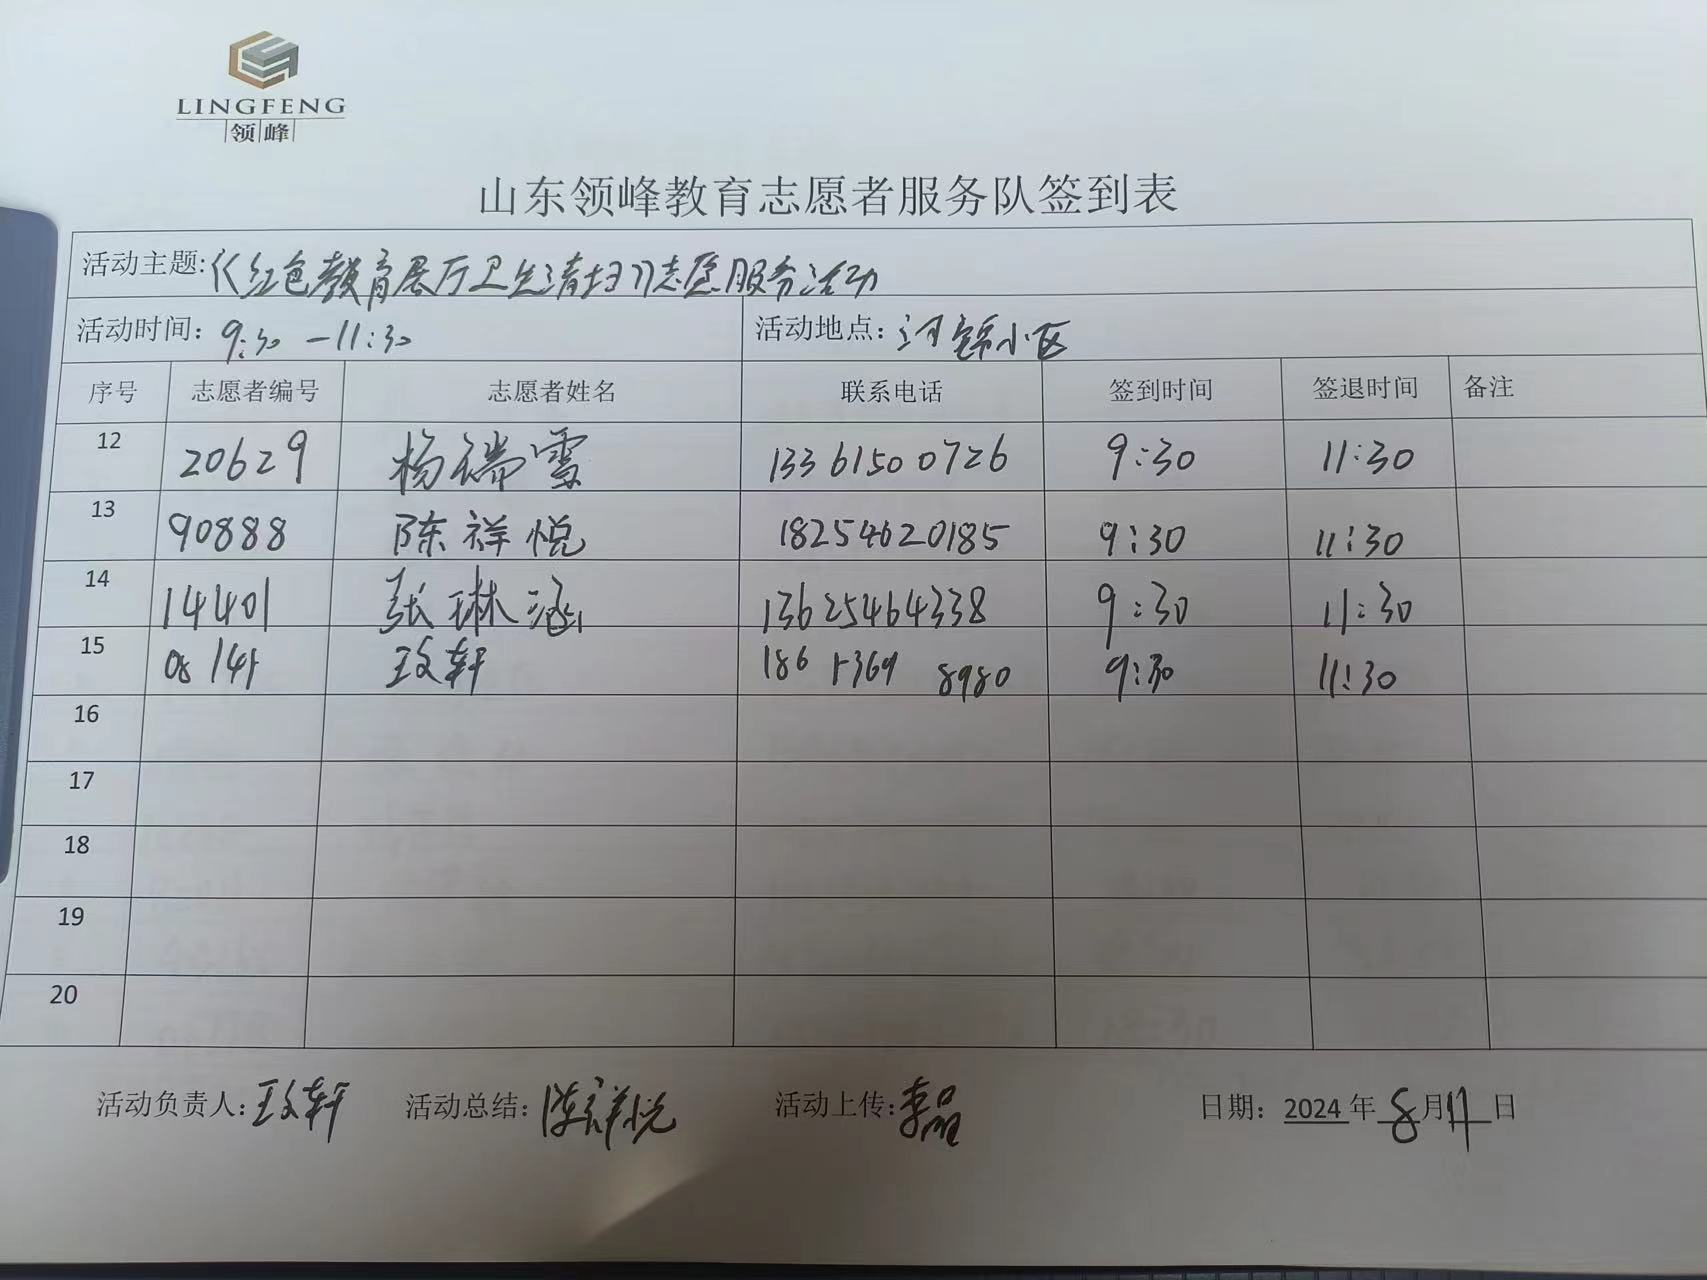 LINGFENG
领峰
山东领峰教育志愿者服务队签到表
活动主题:《红色教育展厅卫生清扫》志愿服务活动
活动时间: 9:30 —11:30 活动地点: 河锦小区
序号 志愿者编号 志愿者姓名 联系电话 签到时间 签退时间 备注
12 20629 杨瑞雪 13361500726 9:30 11:30
13 90888 陈祥悦 18254620185 9:30 11:30
14 14401 张琳涵 13625464338 9:30 11:30
15 王文轩 8980 9:30 11:30
16
17
18
19
20
活动负责人: 王文轩 活动总结: 陈祥悦 活动上传: 李晶 日期: 2024 年 8 月 日